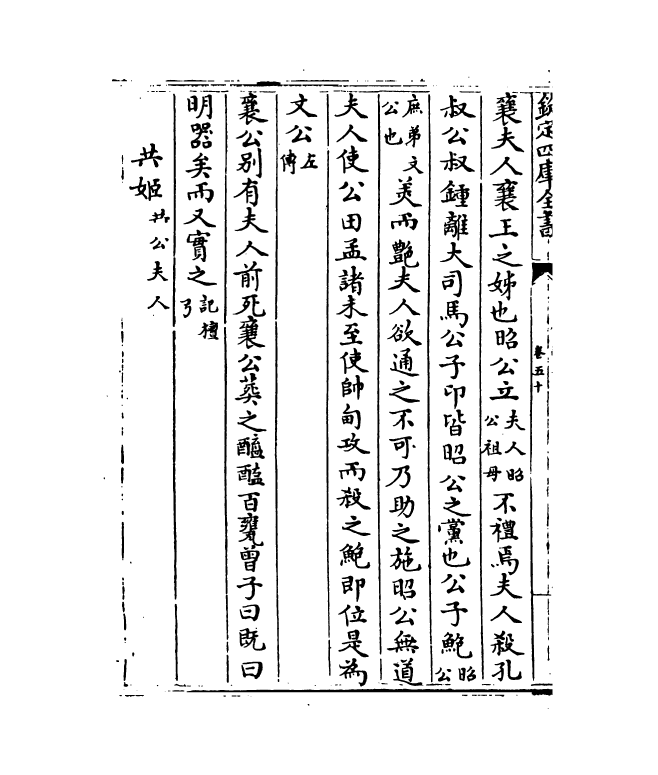 欽定四庫全書
卷五十
襄夫人襄王之姊也昭公立夫人昭公祖母不禮焉夫人殺孔
叔公叔鍾離大司馬公子印皆昭公之黨也公子鮑昭公
庶弟文公也美而艶夫人欲通之不可乃助之施昭公無道
夫人使公田孟諸未至使帥甸攻而殺之鮑即位是為
文公左傳
襄公别有夫人前死襄公葬之醯醢百甕曾子曰既曰
明器矣而又實之記檀弓
共姬共公夫人